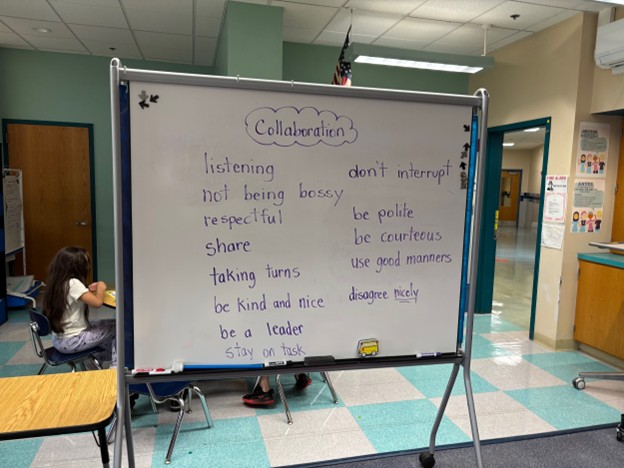 Collaboration
listening
not being bossy
respectful
share
taking turns
be kind and nice
be a leader
stay on task
don't interrupt
be polite
be courteous
use good manners
disagree nicely